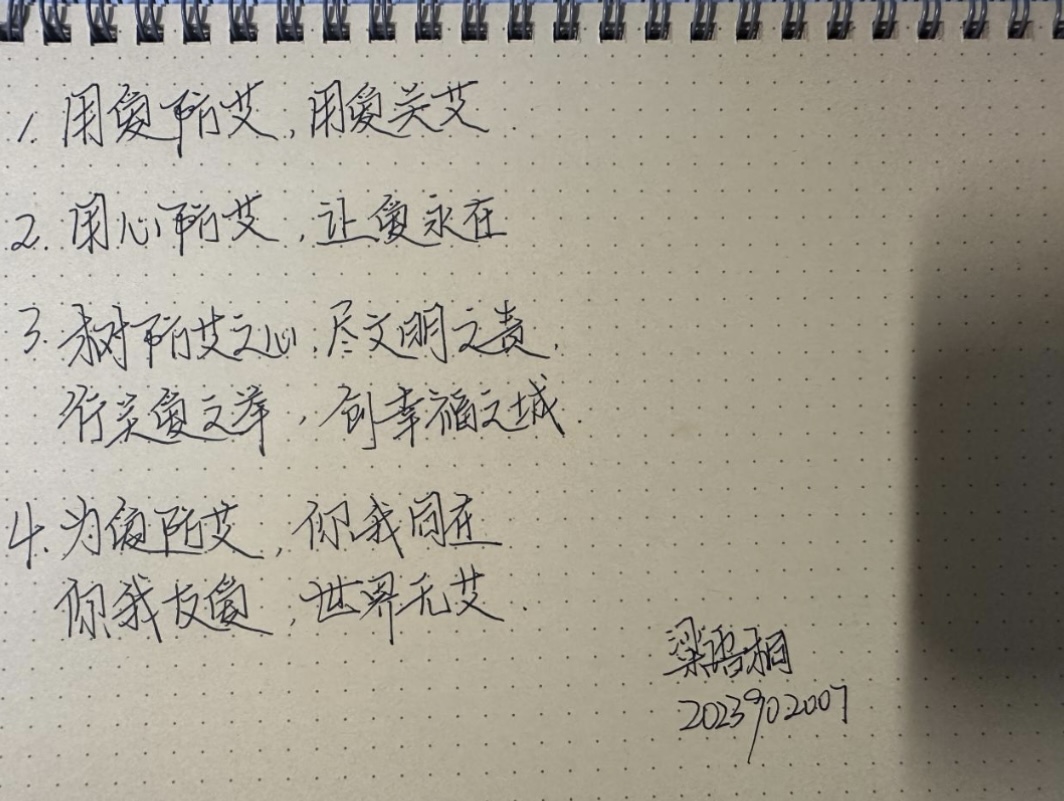 1. 用爱防艾，用爱关艾.
2. 用心防艾，让爱永在
3. 树防艾之心，尽文明之责，
行关爱之举，创幸福之城.
4. 为爱防艾，你我同在
你我友爱，世界无艾.
梁语桐
2023902007